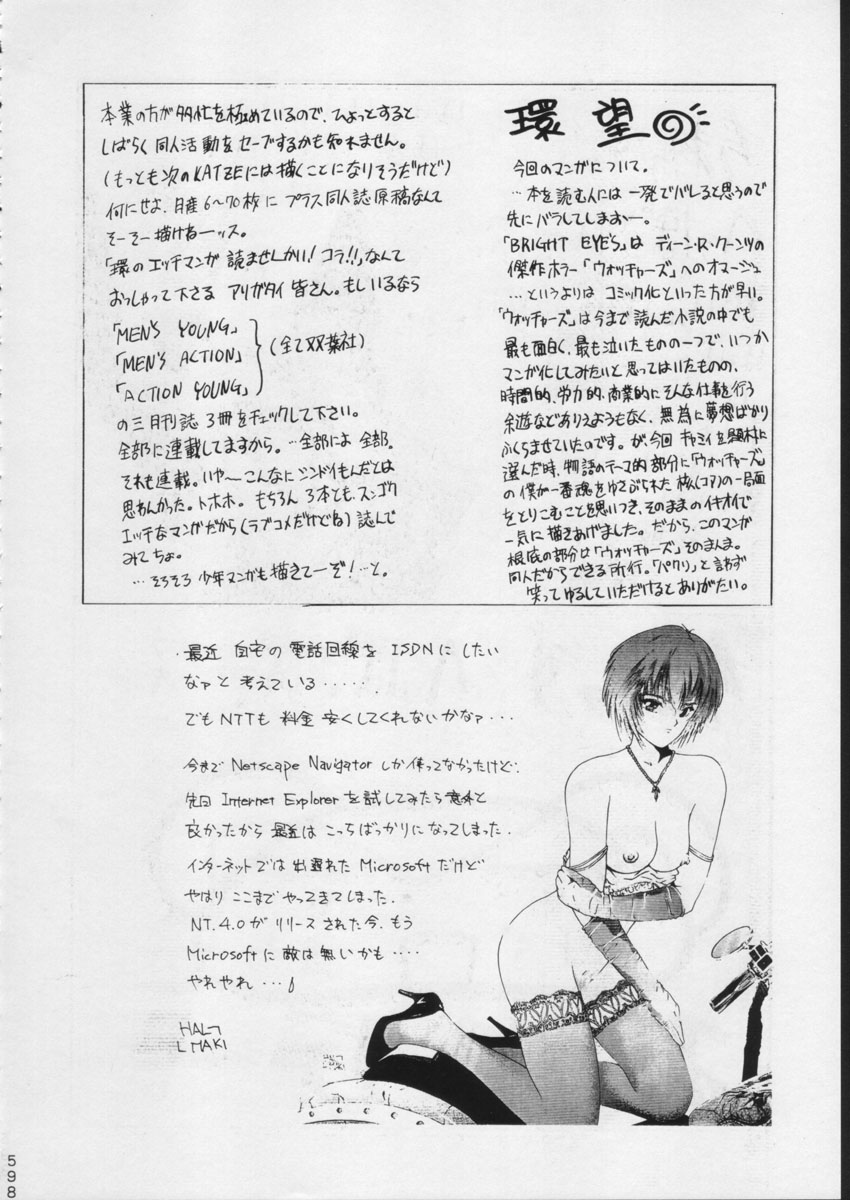 環 望
今回のマンガについて。
…本を読む人には一発でバレると思うので
先にバラしてしまおー。
「BRIGHT EYE'S」は ディーン・R・クーンツの
傑作ホラー「ウォッチャーズ」へのオマージュ
…というよりは コミック化といった方が早い。
「ウォッチャーズ」は今まで読んだ小説の中でも
最も面白く、最も泣いたものの一つで、いつか
マンガ化してみたいと思ってはいたものの、
時間的、労力的、商業的にそんな仕事を行う
余遊などありえようもなく、無為に夢想ばかり
ふくらませていたのです。が、今回 キャミィを題材に
選んだ時、物語のテーマ的部分に「ウォッチャーズ」
の僕が一番魂をゆさぶられた核(コア)の一局面
をとりこむことを思いつき、そのままのイキオイで
一気に描きあげました。だから、このマンガ
根底の部分は「ウォッチャーズ」そのまんま。
同人だからできる所行。「パクリ」と言わず
笑ってゆるしていただけるとありがたい。
本業の方が多忙を極めているので、ひょっとすると
しばらく同人活動をセーブするかも知れません。
(もっとも次のKATZEには描くことになりそうだけど)
何にせよ、月産6〜70枚に プラス同人誌原稿なんて
そーそー描けねーッス。
「環のエッチマンガが 読ませんかい! コラ!!」なんて
おっしゃって下さる アリガタイ 皆さん。もしいるなら
「MEN'S YOUNG」
「MEN'S ACTION」 (全て双葉社)
「ACTION YOUNG」
の三月刊誌 3冊をチェックして下さい。
全部に連載してますから。…全部によ 全部。
それも連載。いや〜こんなにシンドイもんだとは
思わんかった。トホホ。もちろん 3本とも、スンゴク
エッチなマンガだから(ラブコメだけどね) 読んで
みてちょ。
…そろそろ 少年マンガも描きてーぞ! …と。
・最近 自宅の 電話回線を ISDNに したい
なァと 考えている・・・・・.
でもNTTも 料金 安くしてくれないかなァ・・・
今まで Netscape Navigator しか使ってなかったけど、
先日 Internet Explorer を試してみたら 意外と
良かったから 最近は こっちばっかりになってしまった.
インターネットでは 出遅れた Microsoft だけど
やはり ここまで やってきてしまった.
NT.4.0が リリース された今、もう
Microsoftに 敵は無いかも・・・・
やれやれ・・・
HAL
MAKI
598